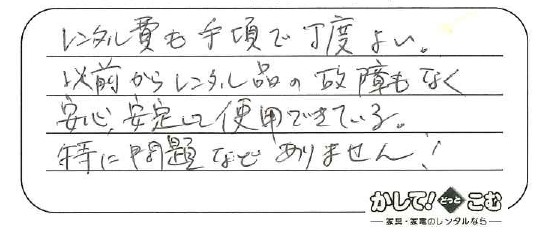 レンタル費も手頃で丁度よい。
以前からレンタル品の故障もなく
安心、安定して使用できている。
特に問題などありません!
かして!どっとこむ
家具・家電のレンタルなら